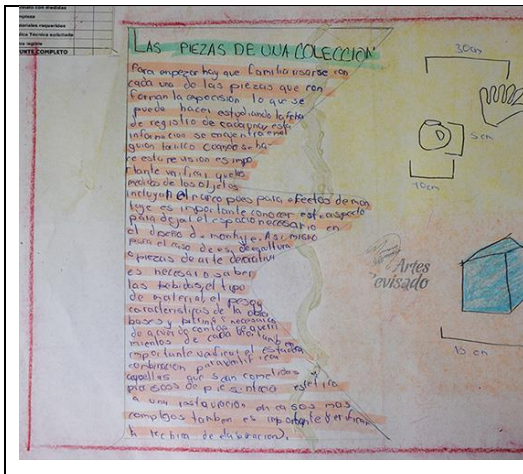 ales requeridos
Técnica solicitada
RTE COMPLETO
LAS PIEZAS DE UNA COLECCIÓN
Para empezar hay que familiarisarse con
cada una de las piezas que con
forman la exposición lo que se
puede hacer estudiando la ficha
de registro de cada
información se encuentra en el
guion cuando se ha
ce esta revisión es impo
rtante verificar que las
medidas de los objetos
incluyan el marco pues para efectos de mon
taje es importante conocer este aspecto
para dejar el espacio necesario en
el diseño de montaje. Asi mismo
para el caso de escultura
o piezas de arte decorativo
es necesario saber
las medidas, el tipo
de material, el peso y
caracteristicas de la obra
bases y necesarios
de acuerdo con los requeri
mientos de cada
importante verificar el estado de
aquellas que sean cometidas
procesos de
a una restauración en casos mas
complejos tambien es importante verificar
la tecnica de elaboracion).
30cm
5cm
10cm
Artes
evisado
15 cm